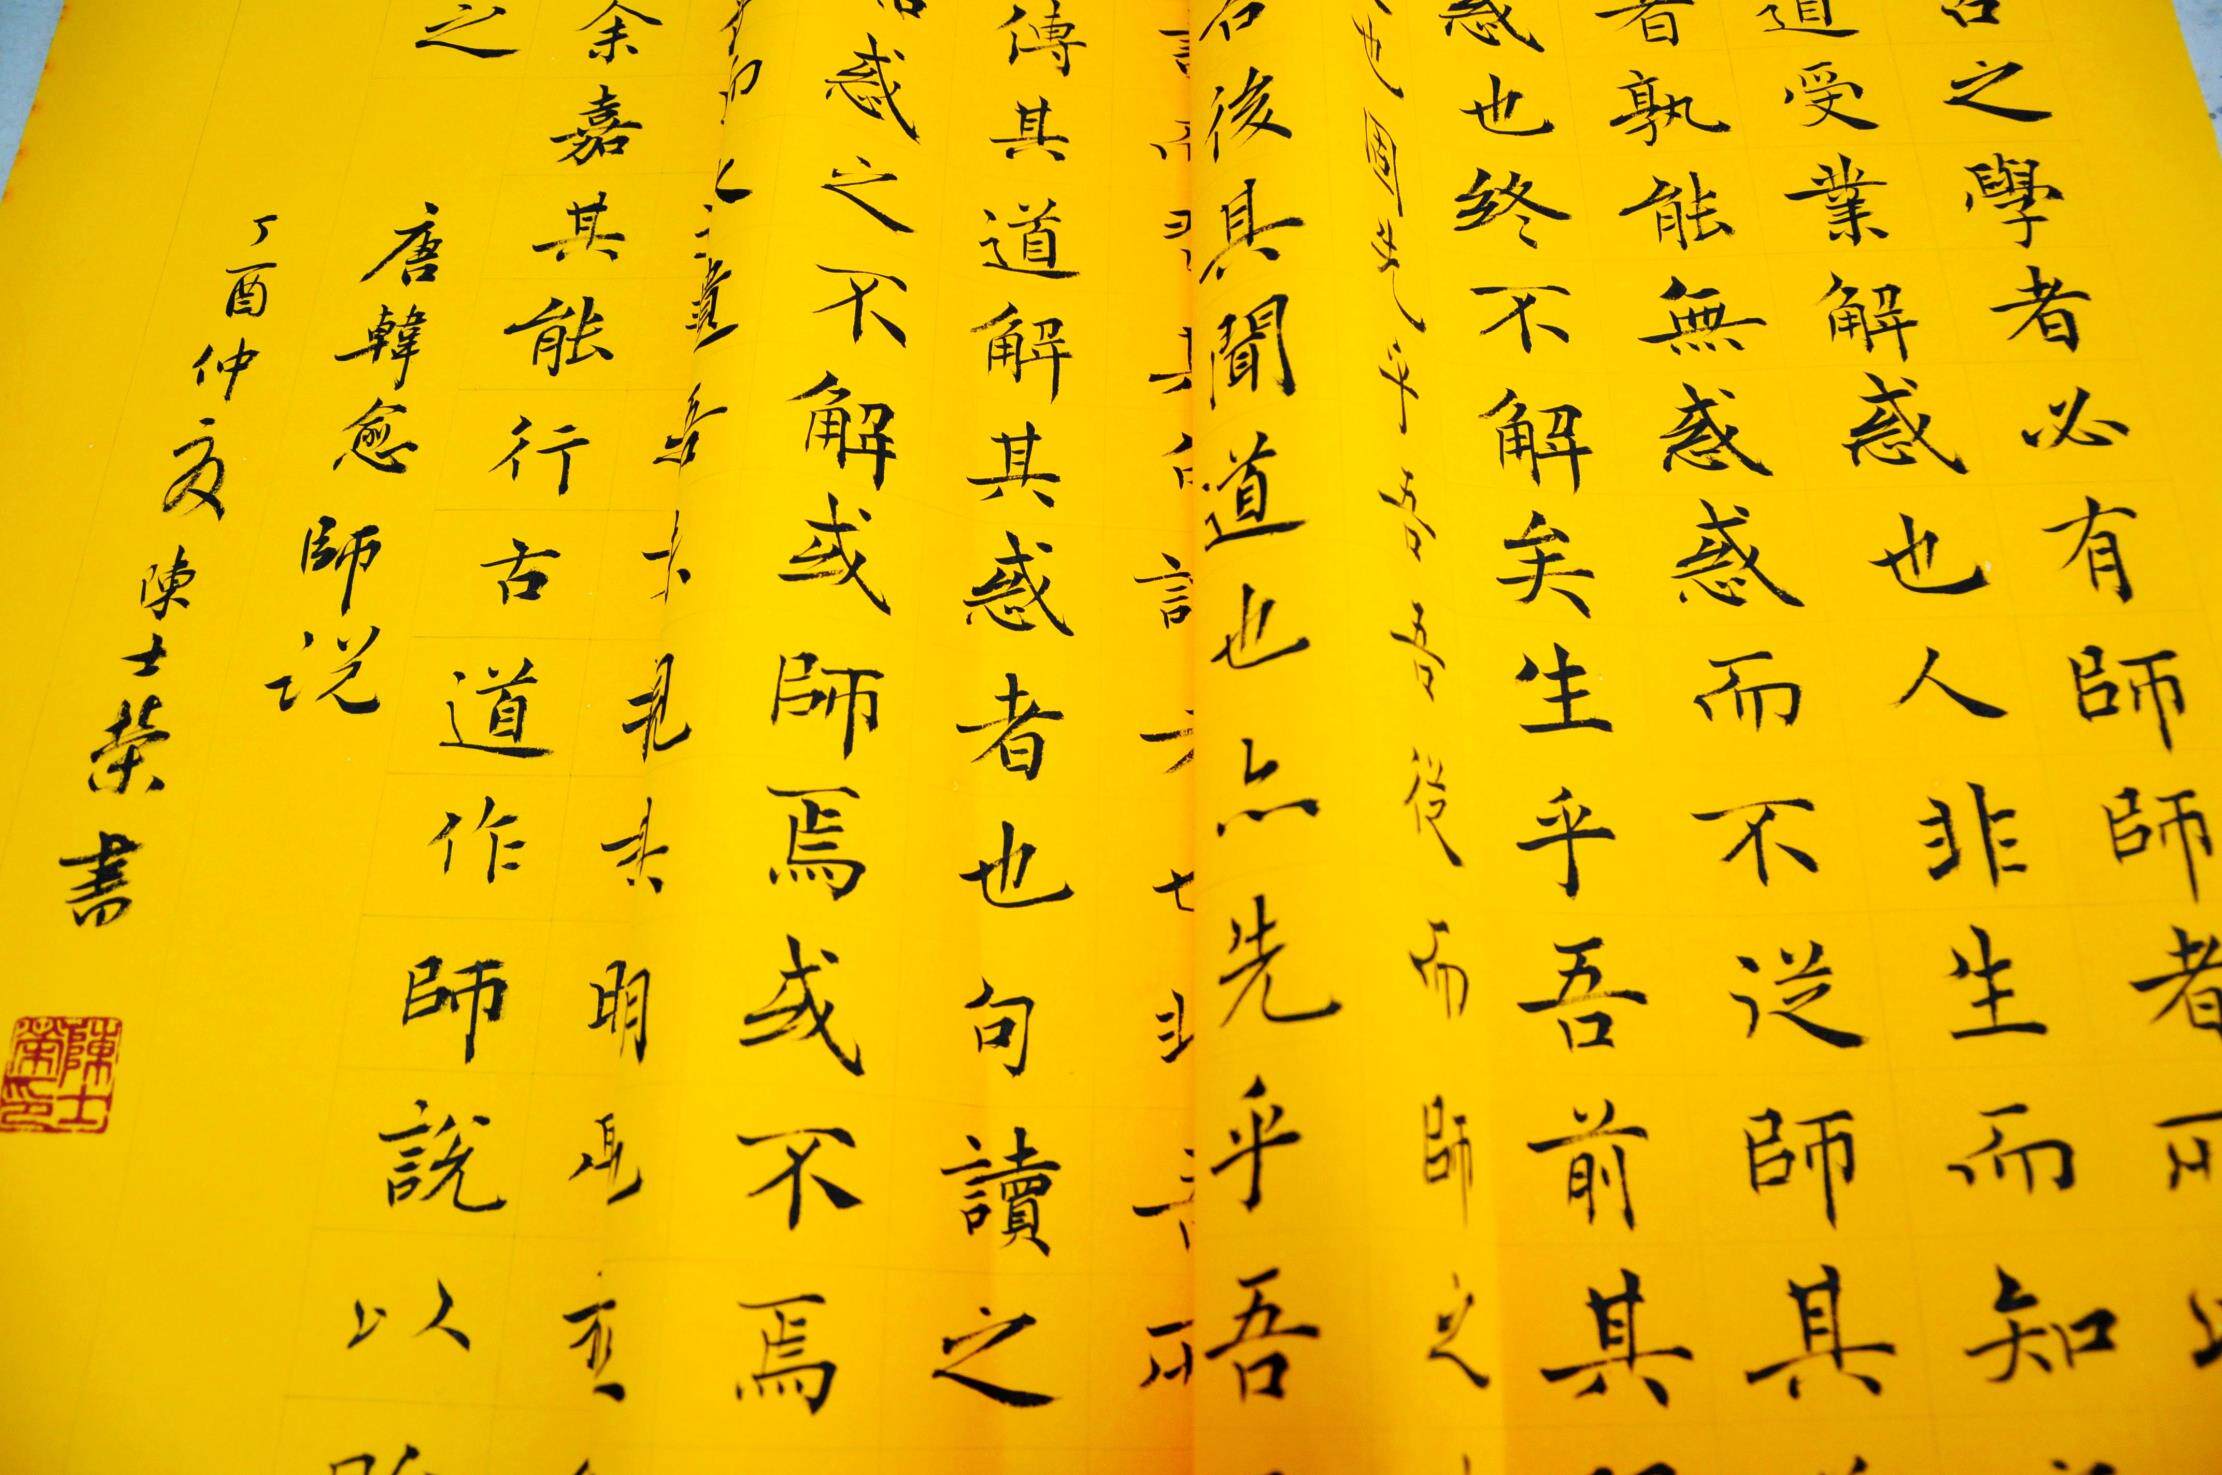 之學者必有師師者所
道受業解惑也人非生而知
者孰能無惑惑而不從師其
惑也終不解矣生乎吾前其
也固先乎吾吾從而師之
後其聞道也亦先乎吾
傳其道解其惑者也句讀之
惑之不解或師焉或不焉
遺吾未見其明也巫
余嘉其能行古道作師說以貽
之
唐韓愈師说
丁酉仲夏陳士榮書
陳士榮印